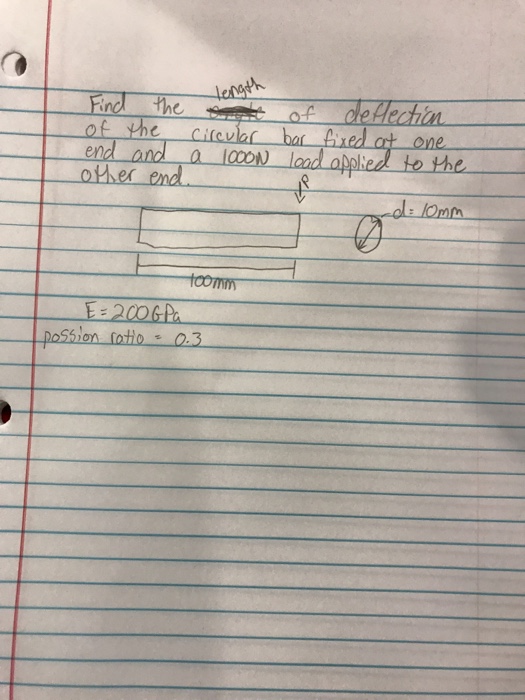 length
Find the of deflection
of the circular bar fixed at one
end and a 1000N load applied to the
other end.
P
d= 10mm
100mm
E = 200GPa
possion ratio = 0.3